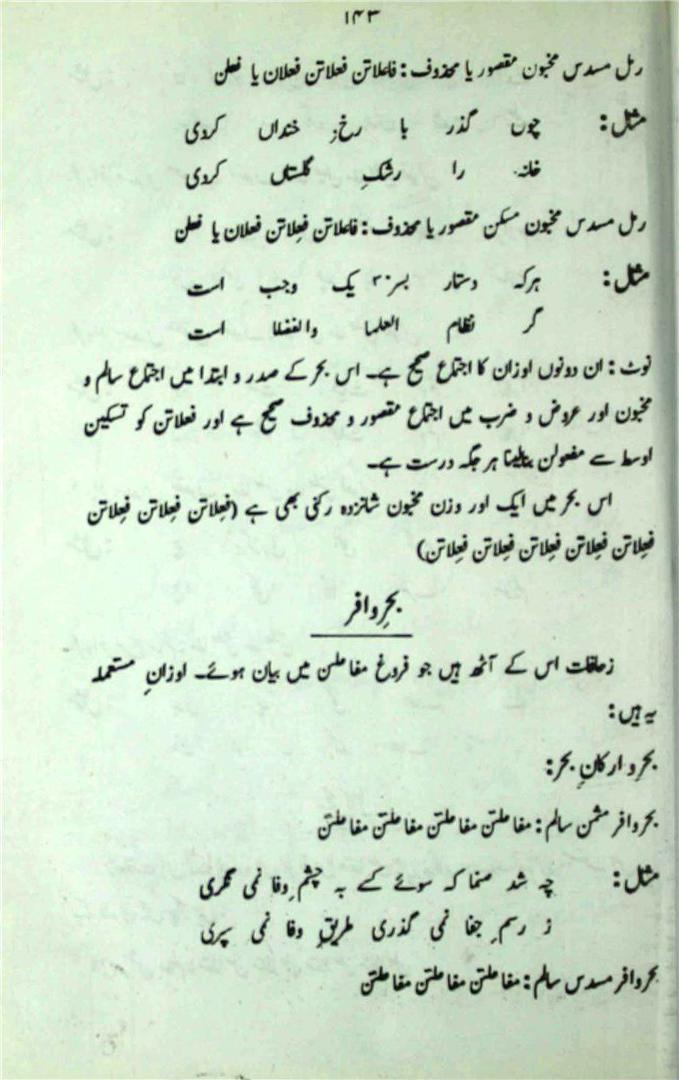 ۱۴۳
رمل مسدس مخبون مقصور یا محذوف: فاعلاتن فعلاتن فعلان یا فعلن
مثال: چوں گذر با رخِ خنداں کردی
خانہ را رشکِ گلستاں کردی
رمل مسدس مخبون مسکن مقصور یا محذوف: فاعلاتن فعِلاتن فعلان یا فعلن
مثال: ہرکہ دستار بسر ۳۰ یک وجب است
گر نظام العلما والفضلا است
نوٹ: ان دونوں اوزان کا اجتماع صحیح ہے۔ اس بحر کے صدر و ابتدا میں اجتماع سالم و
مخبون اور عروض و ضرب میں اجتماع مقصور و محذوف صحیح ہے اور فعلاتن کو تسکین
اوسط سے مفعولن بنالینا ہر جگہ درست ہے۔
اس بحر میں ایک اور وزن مخبون شانزدہ رکنی بھی ہے (فعِلاتن فعِلاتن فعِلاتن فعِلاتن
فعِلاتن فعِلاتن فعِلاتن فعِلاتن فعِلاتن)
بحرِ وافر
زحافات اس کے آٹھ ہیں جو فروغ مفاعلتن میں بیان ہوئے۔ اوزانِ مستعملہ
یہ ہیں:
بحر و ارکانِ بحر:
بحر وافر مثمن سالم: مفاعلتن مفاعلتن مفاعلتن مفاعلتن
مثال: چہ شد صنما کہ سوئے کے بہ چشمِ وفا نمی نگری
ز رسمِ جفا نمی گذری طریقِ وفا نمی سپری
بحر وافر مسدس سالم: مفاعلتن مفاعلتن مفاعلتن